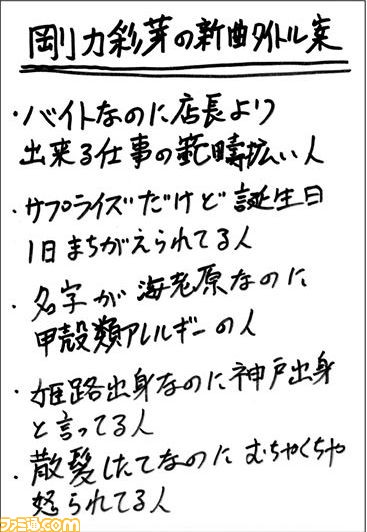 剛力彩芽の新曲タイトル案
・バイトなのに店長より
出来る仕事の範疇広い人
・サプライズだけど誕生日
1日まちがえられてる人
・名字が海老原なのに
甲殻類アレルギーの人
・姫路出身なのに神戸出身
と言ってる人
・散髪したてなのにむちゃくちゃ
怒られてる人
ファミ通.com